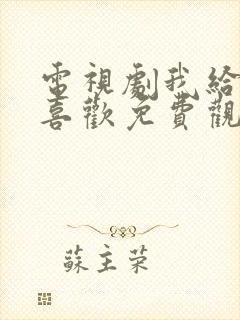 電視劇我給
喜歡免費觀
蘇主荣